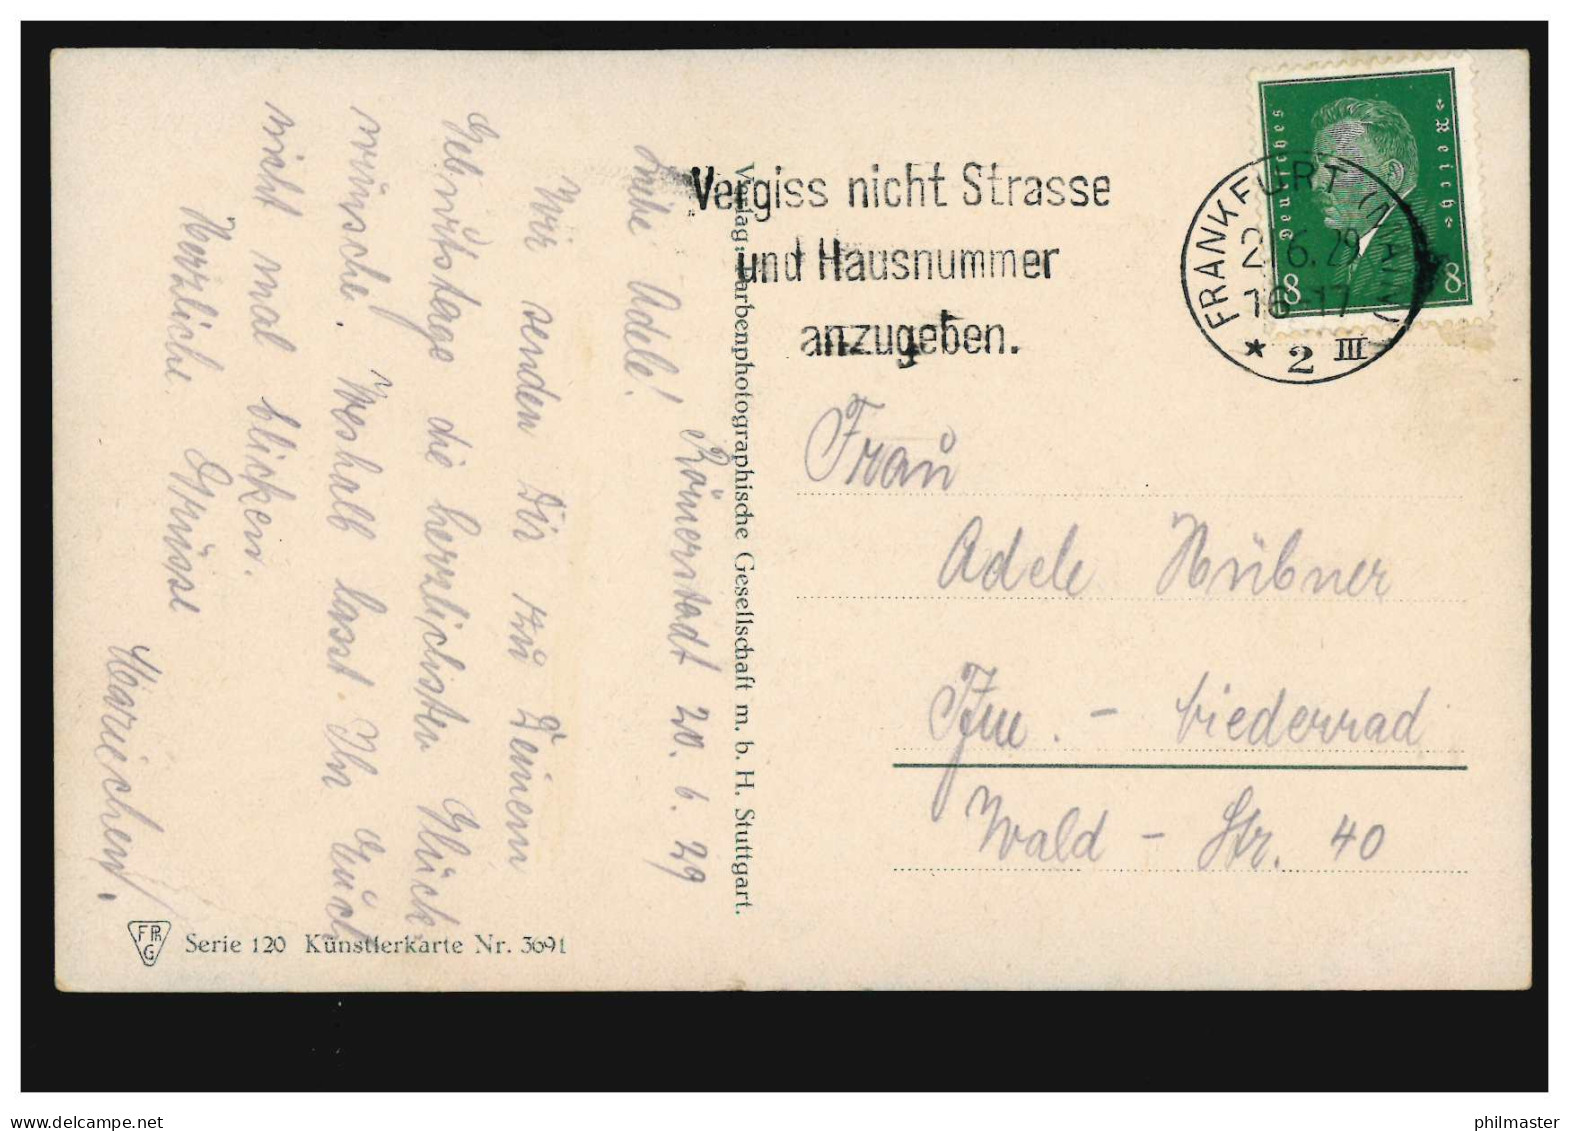 Römerstadt 20. 6. 29
Liebe Adele!
Wir senden Dir zu Deinem
Geburtstage die herzlichsten Glück-
wünsche. Weshalb lasst Ihr Euch
nicht mal blicken.
Herzliche Grüsse
Mariechen.
FPhG Serie 120 Künstlerkarte Nr. 3691
Verlag: Farbenphotographische Gesellschaft m. b. H. Stuttgart.
Vergiss nicht Strasse
und Hausnummer
anzugeben.
FRANKFURT (MAIN)
2 .6.29
16-17
* 2 III
Deutsches Reich
8 8
Frau
Adele Hübner
Ffm. - Niederrad
Wald - Str. 40
www.delcampe.net
philmaster